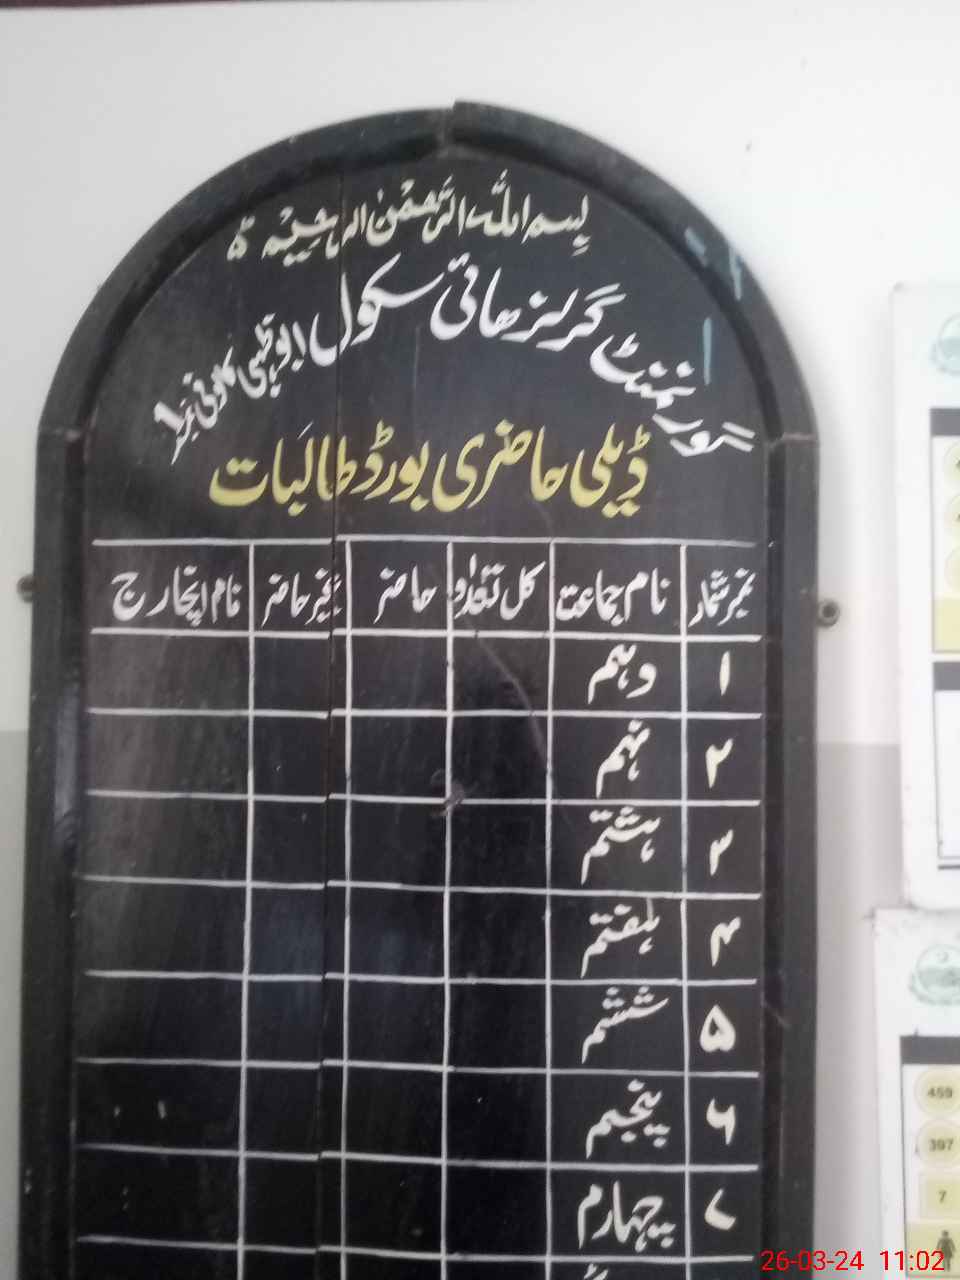 بِسم اللہ الرَّحمٰن الرحیم ہ
گورنمنٹ گرلز ھائی سکول ابوظہبی کالونی نمبر 1
ڈیلی حاضری بورڈ طالبات
نمبر شمار نام جماعت کل تعداد حاضر غیر حاضر نام انچارج
۱ دہم
۲ نہم
۳ ہشتم
۴ ہفتم
۵ ششم
۶ پنجم
۷ چہارم
459
397
7
26-03-24 11:02